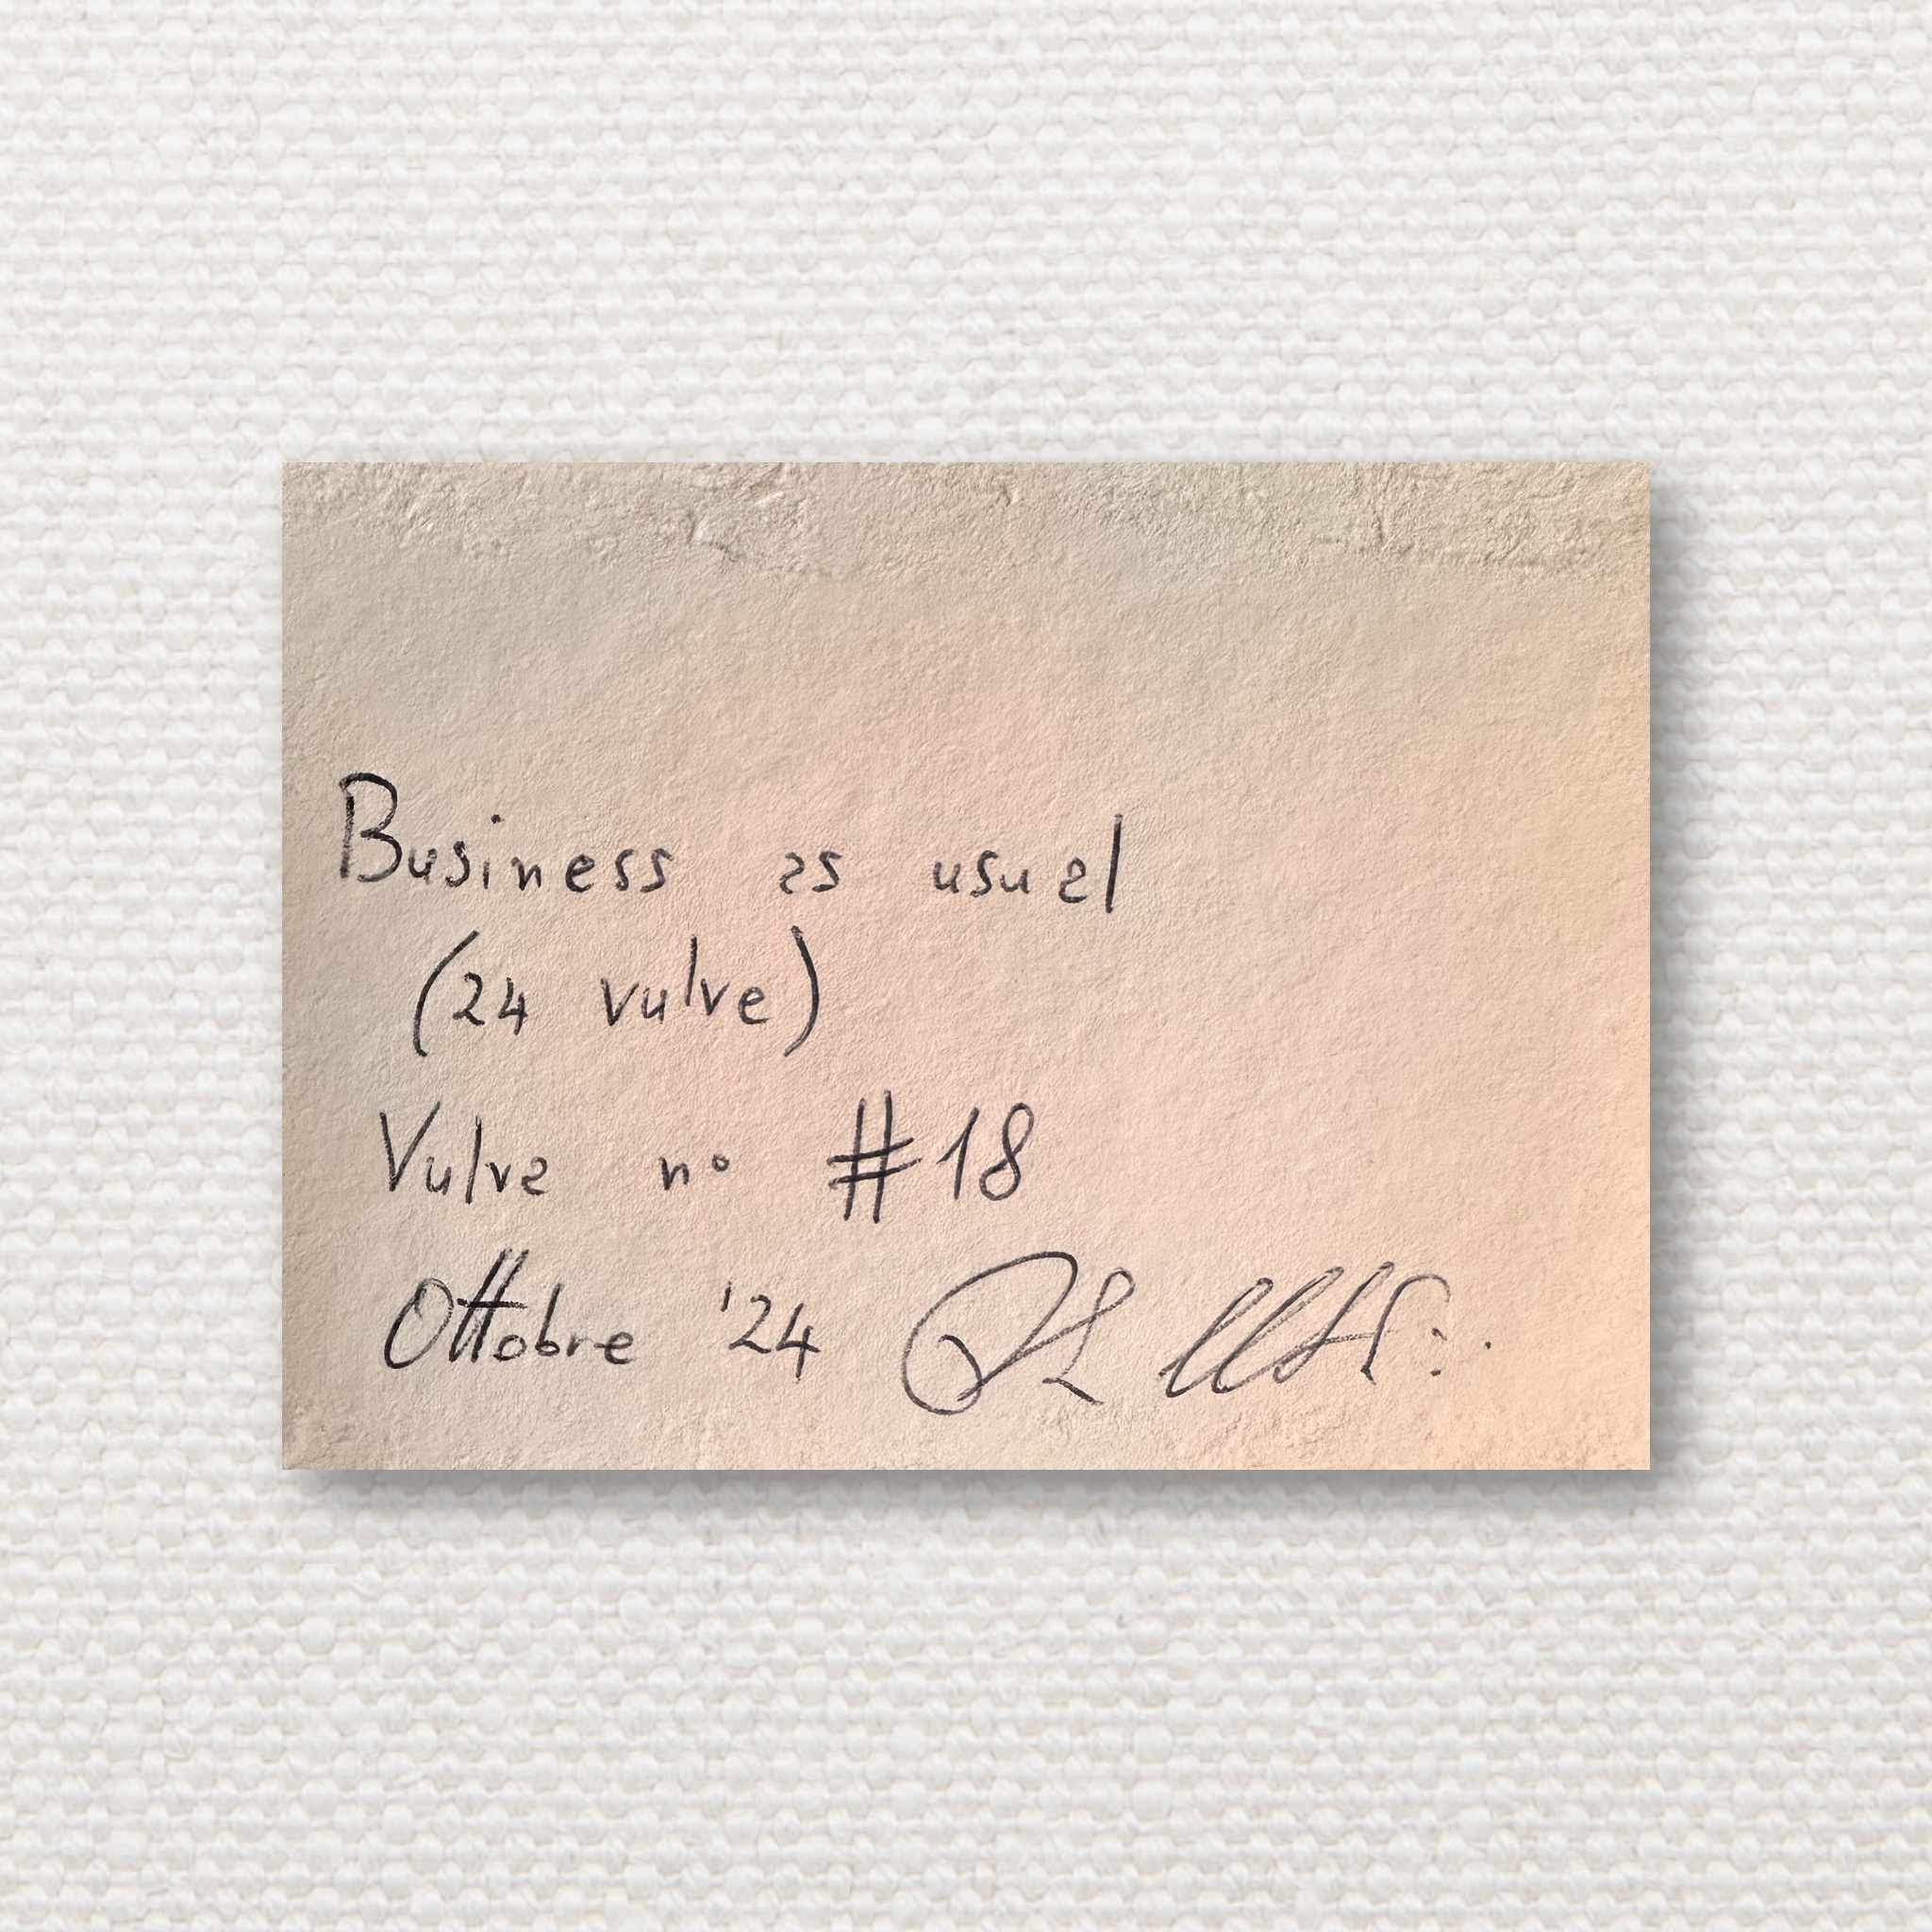 Business as usual
(24 vulve)
Vulva n° #18
Ottobre '24